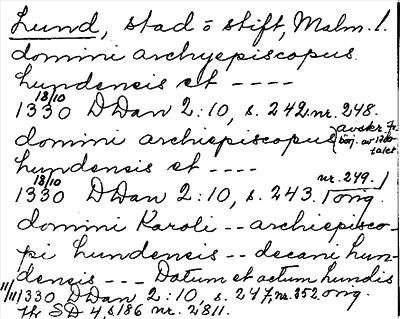 Lund, stad o stift, Malm. l.
domini archyepiscopus
Lundensis et ----
1330 18/10 DDan 2:10, s. 242 nr. 248.
domini archiepiscopus avskr. fr. börj. av 1700-talet
Lundensis et ----
1330 18/10 DDan 2:10, s. 243. nr. 249. orig.
domini Karoli -- archiepisco-
pi Lundensis -- decani Lun-
densis --- Datum et actum Lundis
11/11 1330 DDan 2:10, s. 247, nr. 252. orig.
SD 4, s186 nr. 2811.